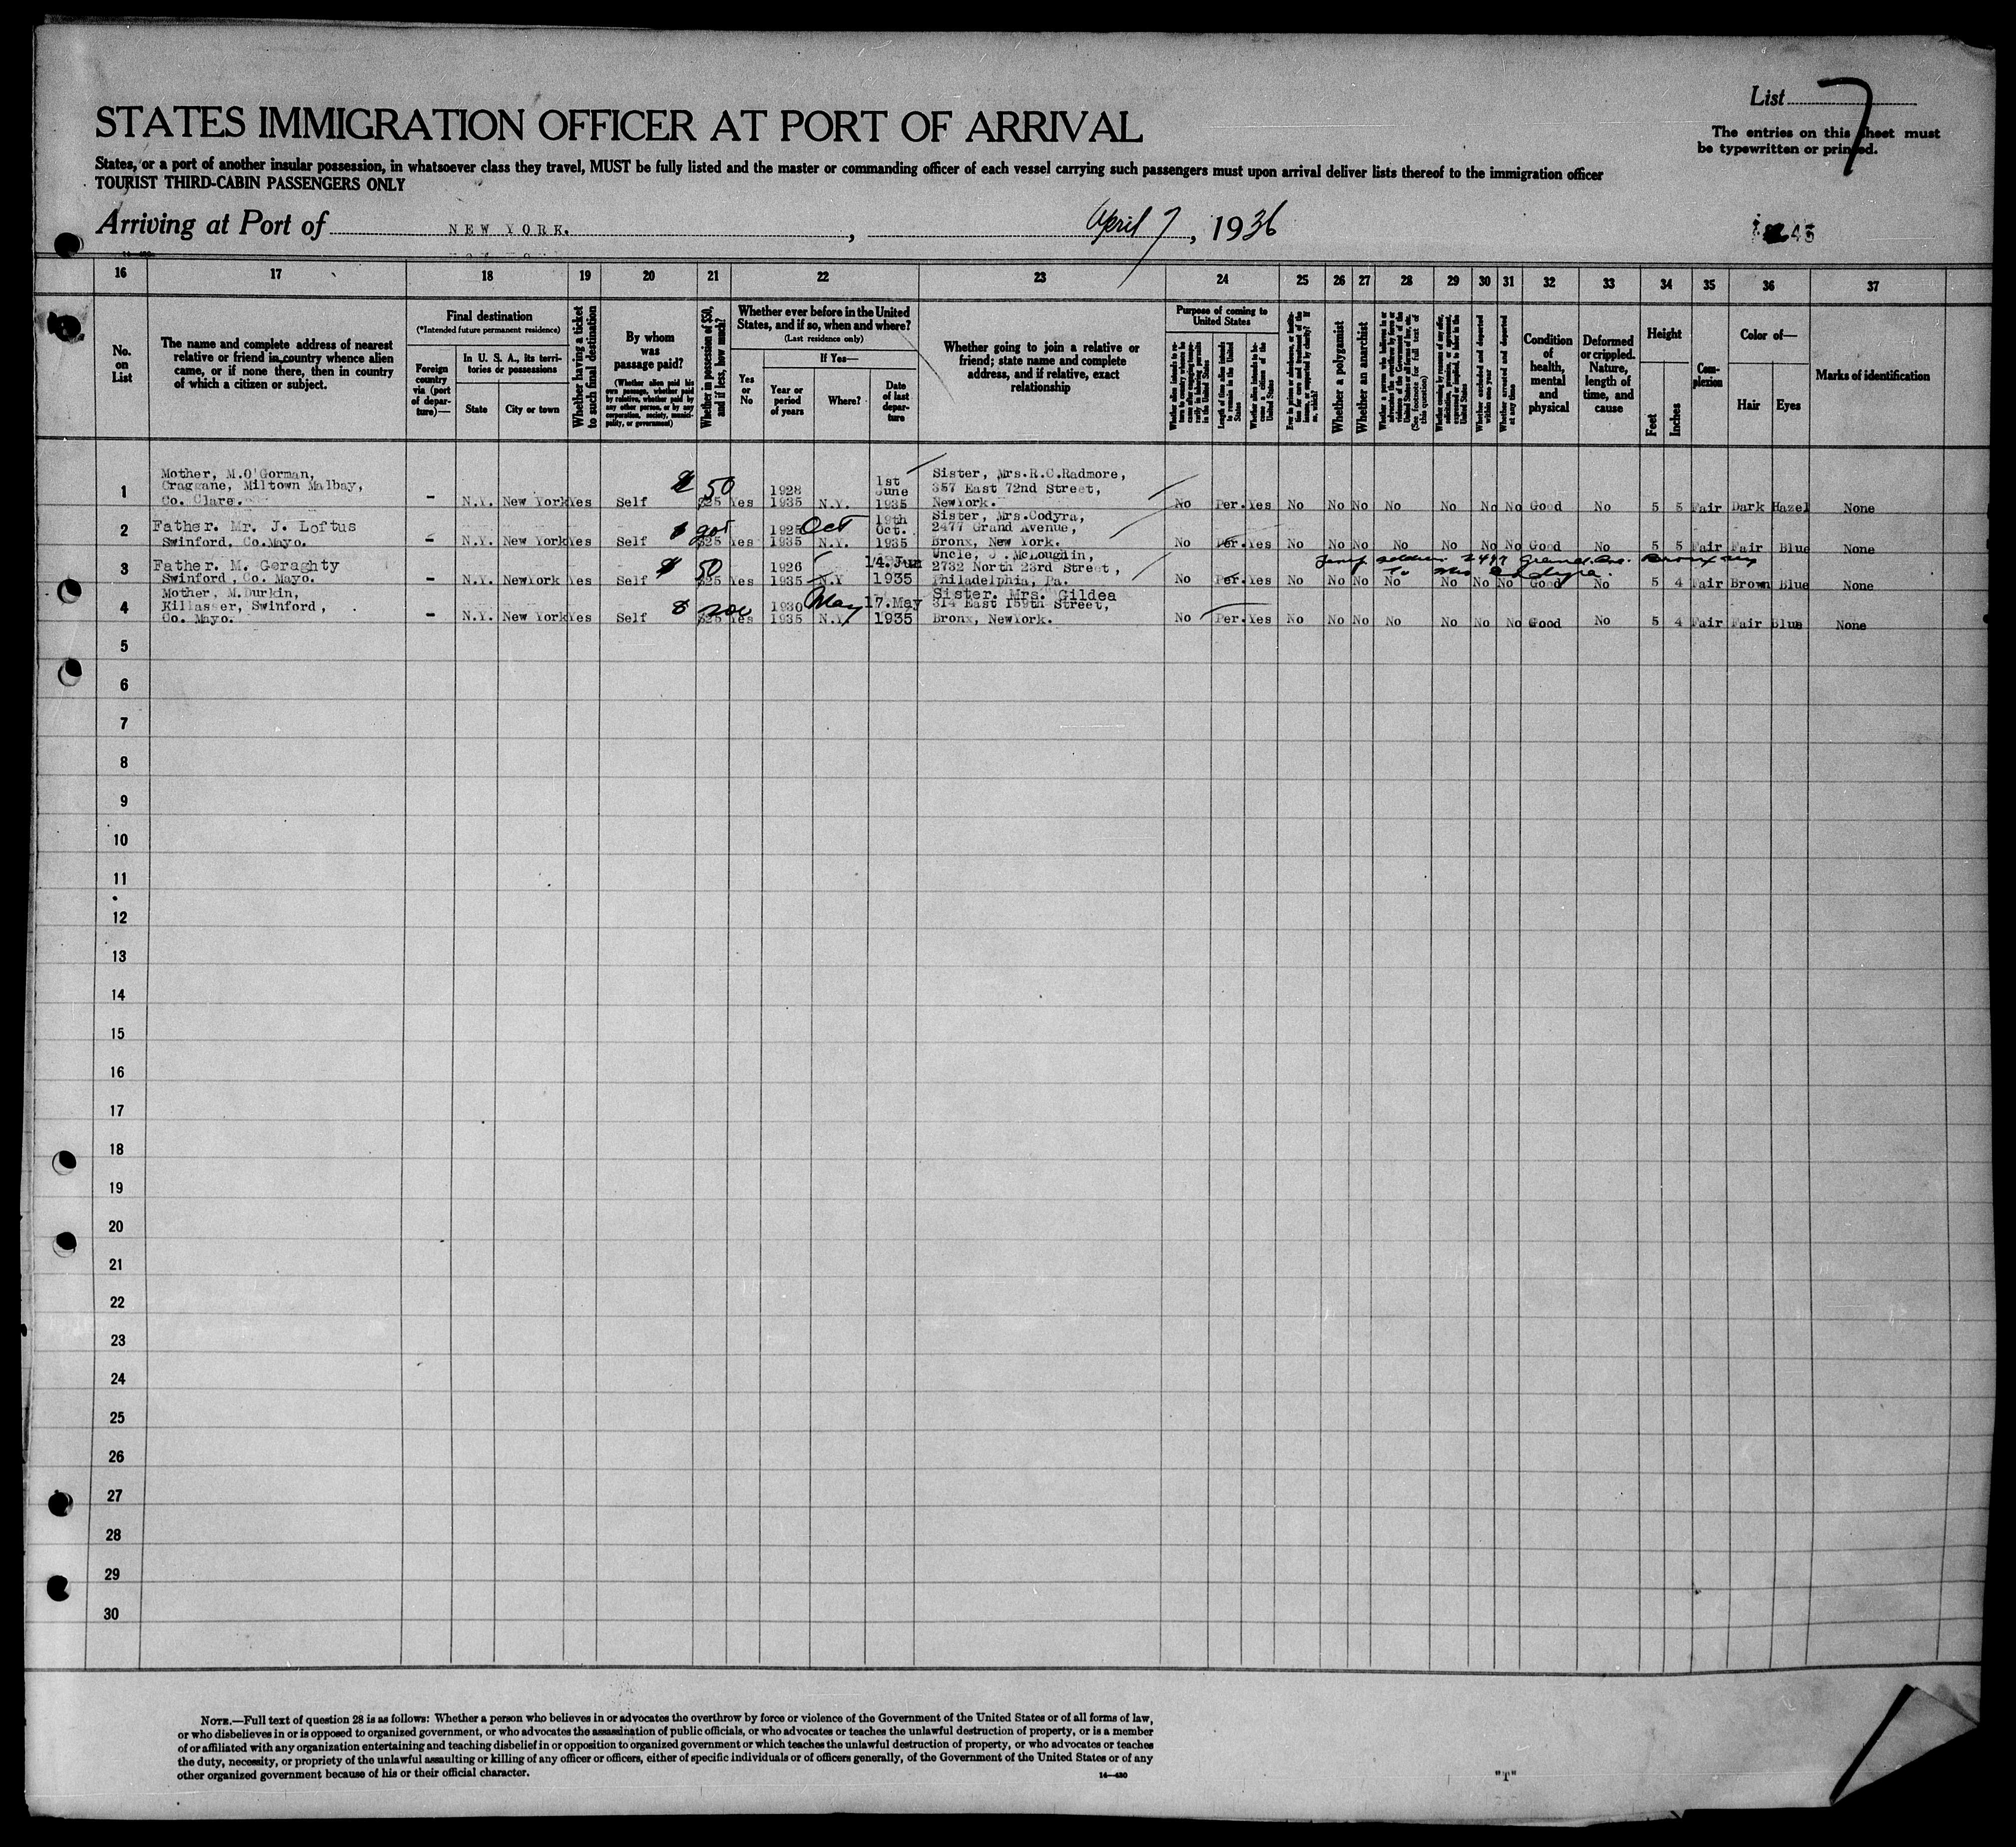 List 7
STATES IMMIGRATION OFFICER AT PORT OF ARRIVAL
The entries on this sheet must
be typewritten or printed.
States, or a port of another insular possession, in whatsoever class they travel, MUST be fully listed and the master or commanding officer of each vessel carrying such passengers must upon arrival deliver lists thereof to the immigration officer
TOURIST THIRD-CABIN PASSENGERS ONLY
Arriving at Port of NEW YORK. , April 7, 1936
16 17 18 19 20 21 22 23 24 25 26 27 28 29 30 31 32 33 34 35 36 37
No.
on
List
The name and complete address of nearest
relative or friend in country whence alien
came, or if none there, then in country
of which a citizen or subject.
Final destination
(*Intended future permanent residence)
Foreign
country
via (port
of depar-
ture)—
In U. S. A., its terri-
tories or possessions
State
City or town
Whether having a ticket
to such final destination
By whom
was
passage paid?
(Whether alien paid his
own passage, whether paid
by relative, whether paid by
any other person, or by any
corporation, society, munici-
pality, or government)
Whether in possession of $50,
and if less, how much?
Whether ever before in the United
States, and if so, when and where?
(Last residence only)
Yes
or
No
If Yes—
Year or
period
of years
Where?
Date
of last
depar-
ture
Whether going to join a relative or
friend; state name and complete
address, and if relative, exact
relationship
Purpose of coming to
United States
Length of time alien intends
to remain in the United
States
Whether alien intends to be-
come a citizen of the
United States
Whether a polygamist
Whether an anarchist
Whether arrested and deported
at any time
Condition
of
health,
mental
and
physical
Deformed
or crippled.
Nature,
length of
time, and
cause
Height
Feet
Inches
Com-
plexion
Color of—
Hair
Eyes
Marks of identification
1 Mother, M.O'Gorman,
Craggane, Miltown Malbay,
Co. Clare. - N.Y. New York Yes Self $ 50 $25 Yes 1928 1935 N.Y. 1st June 1935 Sister, Mrs.R.C.Radmore,
357 East 72nd Street,
NewYork. No Per. Yes No No No No No No No Good No 5 5 Fair Dark Hazel None
2 Father. Mr. J. Loftus
Swinford, Co.Mayo. - N.Y. New York Yes Self $ $25 Yes 1925 1935 Oct N.Y. 19th Oct. 1935 Sister, Mrs.Codyra,
2477 Grand Avenue,
Bronx, New York. No Per. Yes No No No No No No No Good No 5 5 Fair Fair Blue None
3 Father. M. Geraghty
Swinford, Co. Mayo. - N.Y. NewYork Yes Self $ 50 $25 Yes 1926 1935 N.Y 14.Jun 1935 Uncle, J. McLoughlin,
2732 North 23rd Street,
Philadelphia, Pa. No Per. Yes No No No No No No No Good No 5 4 Fair Brown Blue None
4 Mother, M.Durkin,
Killasser, Swinford,
Co. Mayo. - N.Y. New York Yes Self $ 200 $25 Yes 1930 1935 May N.Y. 17.May 1935 Sister. Mrs. Gildea
314 East 159th Street,
Bronx, NewYork. No Per. Yes No No No No No No No Good No 5 4 Fair Fair Blue None
5
6
7
8
9
10
11
12
13
14
15
16
17
18
19
20
21
22
23
24
25
26
27
28
29
30
NOTE.—Full text of question 28 is as follows: Whether a person who believes in or advocates the overthrow by force or violence of the Government of the United States or of all forms of law,
or who disbelieves in or is opposed to organized government, or who advocates the assassination of public officials, or who advocates or teaches the unlawful destruction of property, or is a member
of or affiliated with any organization entertaining and teaching disbelief in or opposition to organized government or which teaches the unlawful destruction of property, or who advocates or teaches
the duty, necessity, or propriety of the unlawful assaulting or killing of any officer or officers, either of specific individuals or of officers generally, of the Government of the United States or of any
other organized government because of his or their official character.
14—430
"T"